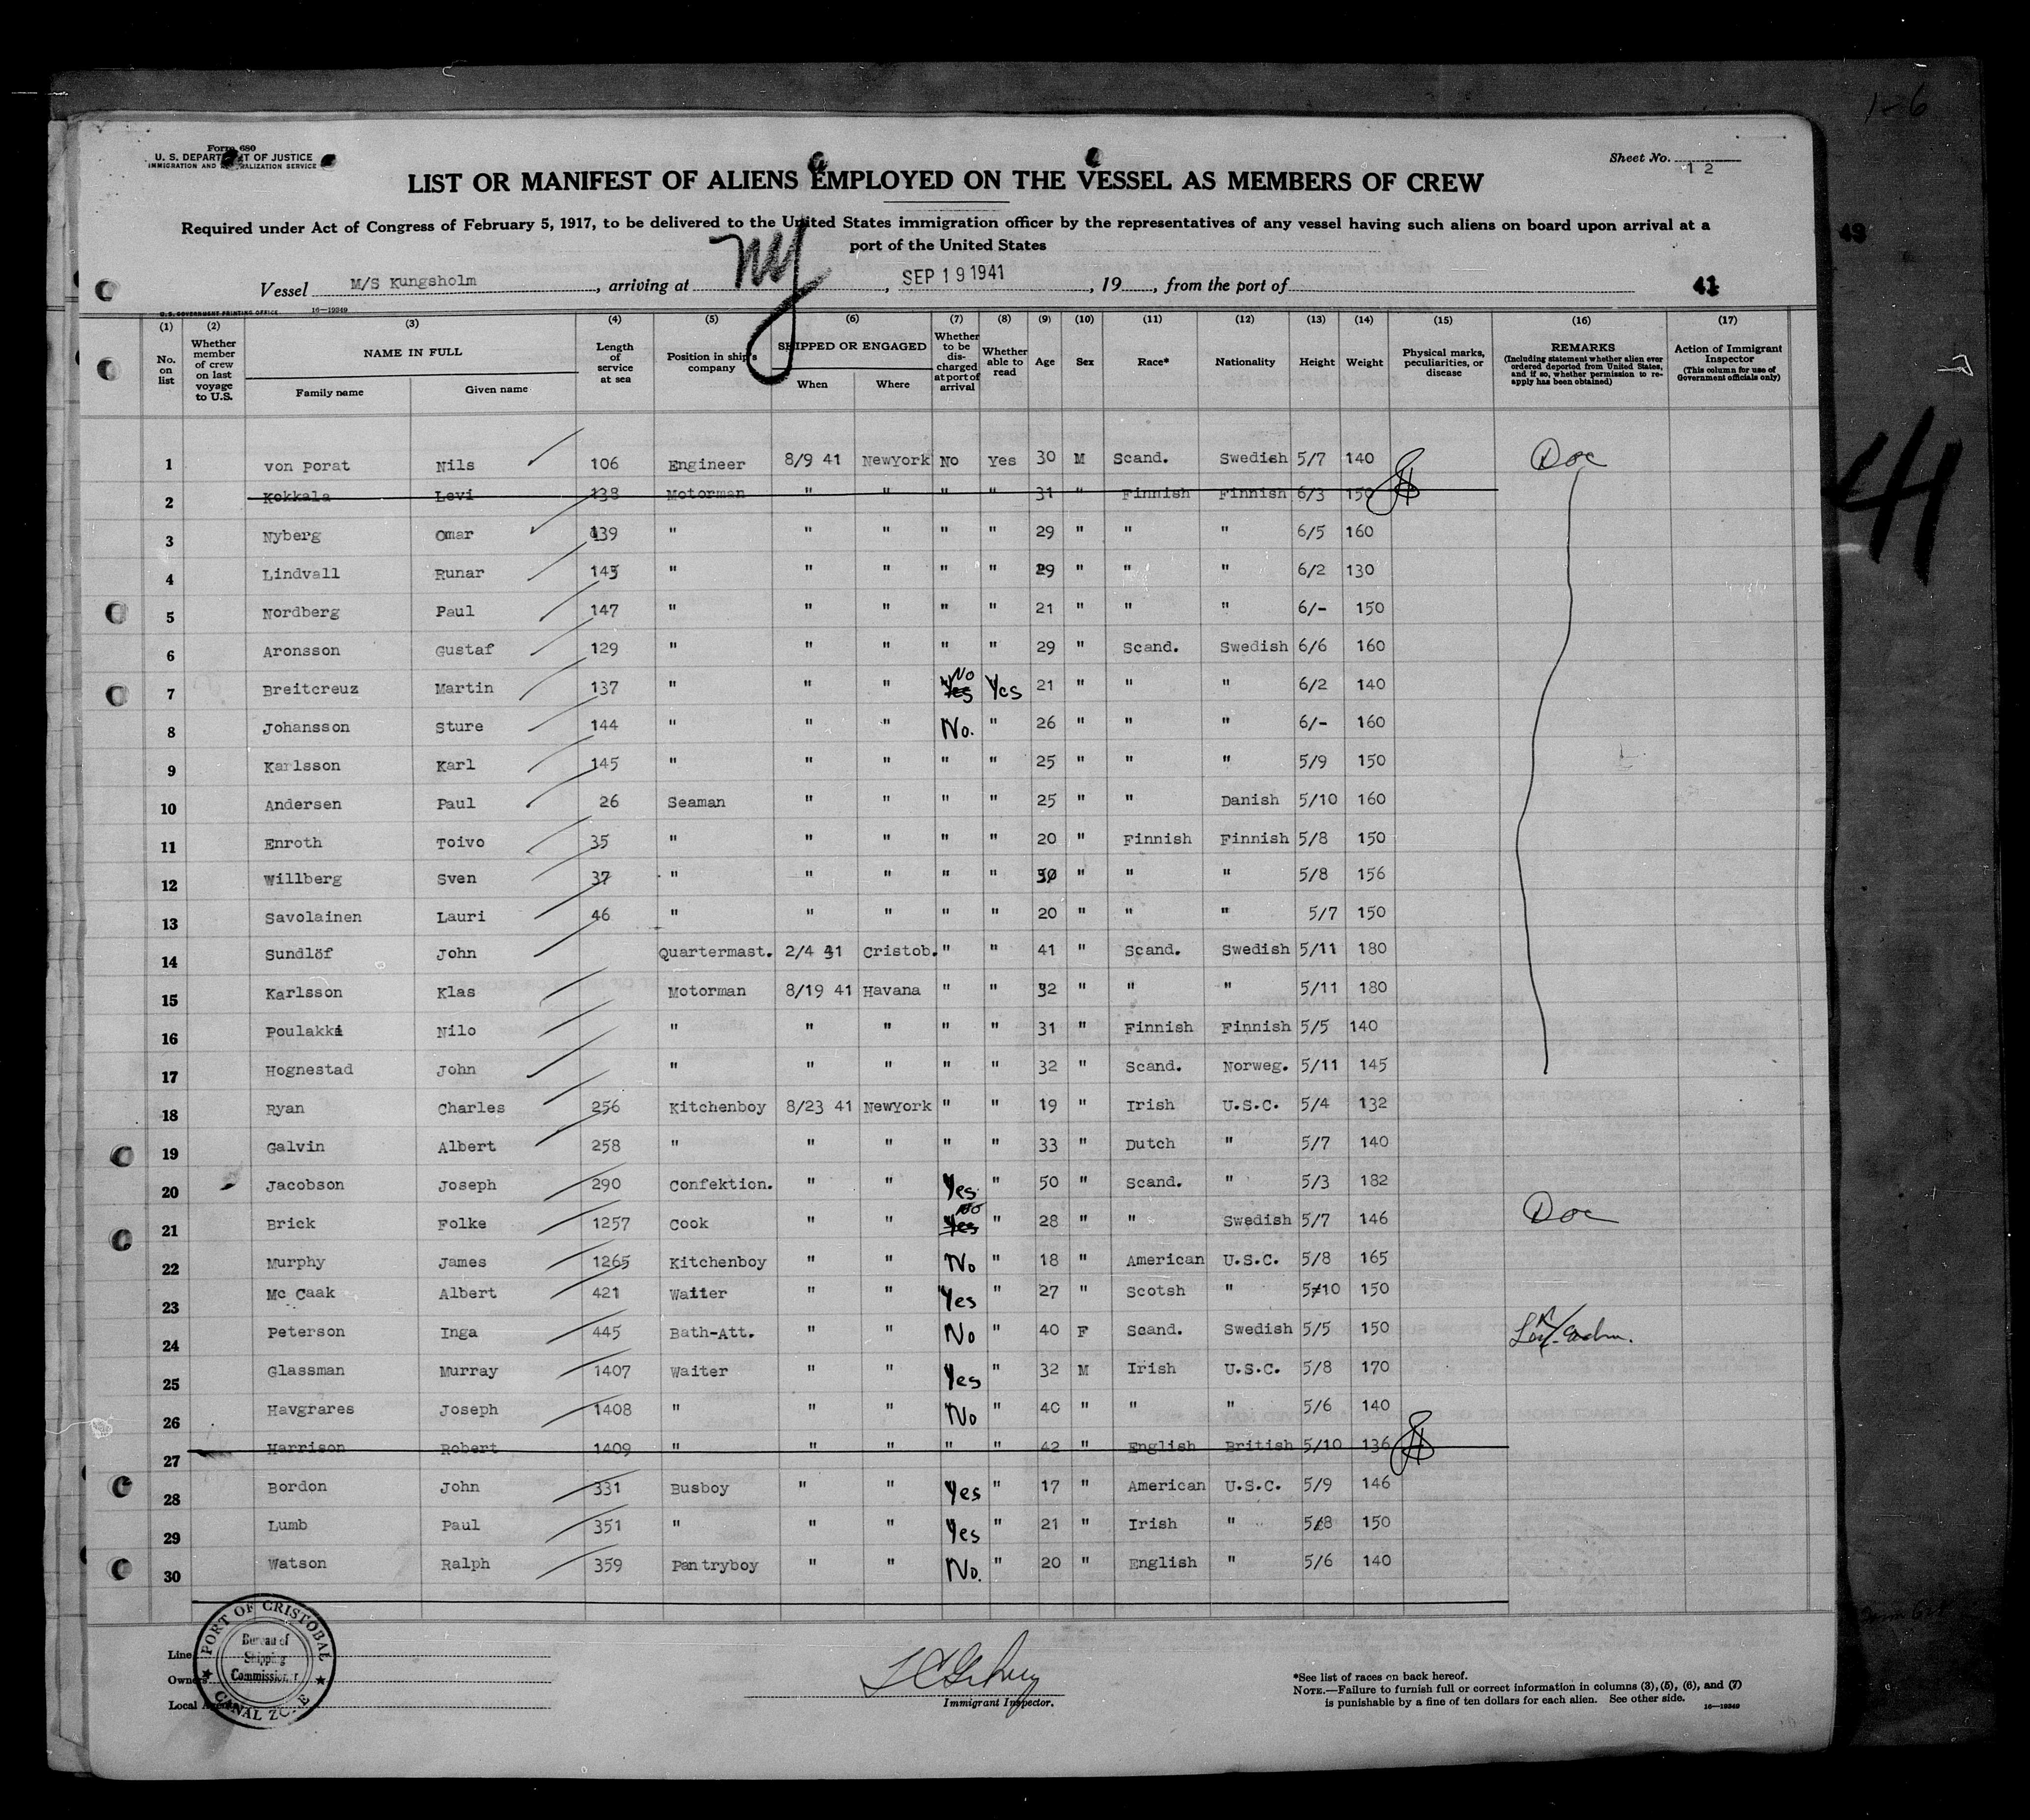 1-6
Form 680
U. S. DEPARTMENT OF JUSTICE
IMMIGRATION AND NATURALIZATION SERVICE
Sheet No. 12
LIST OR MANIFEST OF ALIENS EMPLOYED ON THE VESSEL AS MEMBERS OF CREW
Required under Act of Congress of February 5, 1917, to be delivered to the United States immigration officer by the representatives of any vessel having such aliens on board upon arrival at a
port of the United States
49
Vessel M/S Kungsholm, arriving at NY, SEP 19 1941, 19, from the port of 41
U. S. GOVERNMENT PRINTING OFFICE 16—19349
(1) (2) (3) (4) (5) (6) (7) (8) (9) (10) (11) (12) (13) (14) (15) (16) (17)
No. on list
Whether member of crew on last voyage to U.S.
NAME IN FULL
Family name Given name
Length of service at sea
Position in ship's company
SHIPPED OR ENGAGED
When Where
Whether to be discharged at port of arrival
Whether able to read
Age
Sex
Race*
Nationality
Height
Weight
Physical marks, peculiarities, or disease
REMARKS
(Including statement whether alien ever ordered deported from United States, and if so, whether permission to re-apply has been obtained)
Action of Immigrant Inspector
(This column for use of Government officials only)
41
1 von Porat Nils 106 Engineer 8/9 41 NewYork No Yes 30 M Scand. Swedish 5/7 140 Doc
2 Kokkala Levi 138 Motorman " " " " 31 " Finnish Finnish 6/3 150
3 Nyberg Omar 139 " " " " " 29 " " " 6/5 160
4 Lindvall Runar 143 " " " " " 29 " " " 6/2 130
5 Nordberg Paul 147 " " " " " 21 " " " 6/- 150
6 Aronsson Gustaf 129 " " " " " 29 " Scand. Swedish 6/6 160
7 Breitcreuz Martin 137 " " " Yes No Yes 21 " " " 6/2 140
8 Johansson Sture 144 " " " No. " 26 " " " 6/- 160
9 Karlsson Karl 145 " " " " " 25 " " " 5/9 150
10 Andersen Paul 26 Seaman " " " " 25 " " Danish 5/10 160
11 Enroth Toivo 35 " " " " " 20 " Finnish Finnish 5/8 150
12 Willberg Sven 37 " " " " " " " " 5/8 156
13 Savolainen Lauri 46 " " " " " 20 " " " 5/7 150
14 Sundlöf John Quartermast. 2/4 41 Cristob. " " 41 " Scand. Swedish 5/11 180
15 Karlsson Klas Motorman 8/19 41 Havana " " 32 " " " 5/11 180
16 Poulakki Nilo " " " " " 31 " Finnish Finnish 5/5 140
17 Hognestad John " " " " " 32 " Scand. Norweg. 5/11 145
18 Ryan Charles 256 Kitchenboy 8/23 41 NewYork " " 19 " Irish U.S.C. 5/4 132
19 Galvin Albert 258 " " " " " 33 " Dutch " 5/7 140
20 Jacobson Joseph 290 Confektion. " " Yes " 50 " Scand. " 5/3 182
21 Brick Folke 1257 Cook " " Yes No " 28 " " Swedish 5/7 146 Doc
22 Murphy James 1265 Kitchenboy " " No " 18 " American U.S.C. 5/8 165
23 Mc Caak Albert 421 Waiter " " Yes " 27 " Scotsh " 5/10 150
24 Peterson Inga 445 Bath-Att. " " No " 40 F Scand. Swedish 5/5 150
25 Glassman Murray 1407 Waiter " " Yes " 32 M Irish U.S.C. 5/8 170
26 Havgrares Joseph 1408 " " " No " 40 " " " 5/6 140
27 Harrison Robert 1409 " " " " " 42 " English British 5/10 136
28 Bordon John 331 Busboy " " Yes " 17 " American U.S.C. 5/9 146
29 Lumb Paul 351 " " " Yes " 21 " Irish " 5/8 150
30 Watson Ralph 359 Pantryboy " " No. " 20 " English " 5/6 140
PORT OF CRISTOBAL
Bureau of Shipping Commissioner
CANAL ZONE
Line
Owners
Local Agents
Immigrant Inspector.
*See list of races on back hereof.
NOTE.—Failure to furnish full or correct information in columns (3), (5), (6), and (7)
is punishable by a fine of ten dollars for each alien. See other side. 16—19349